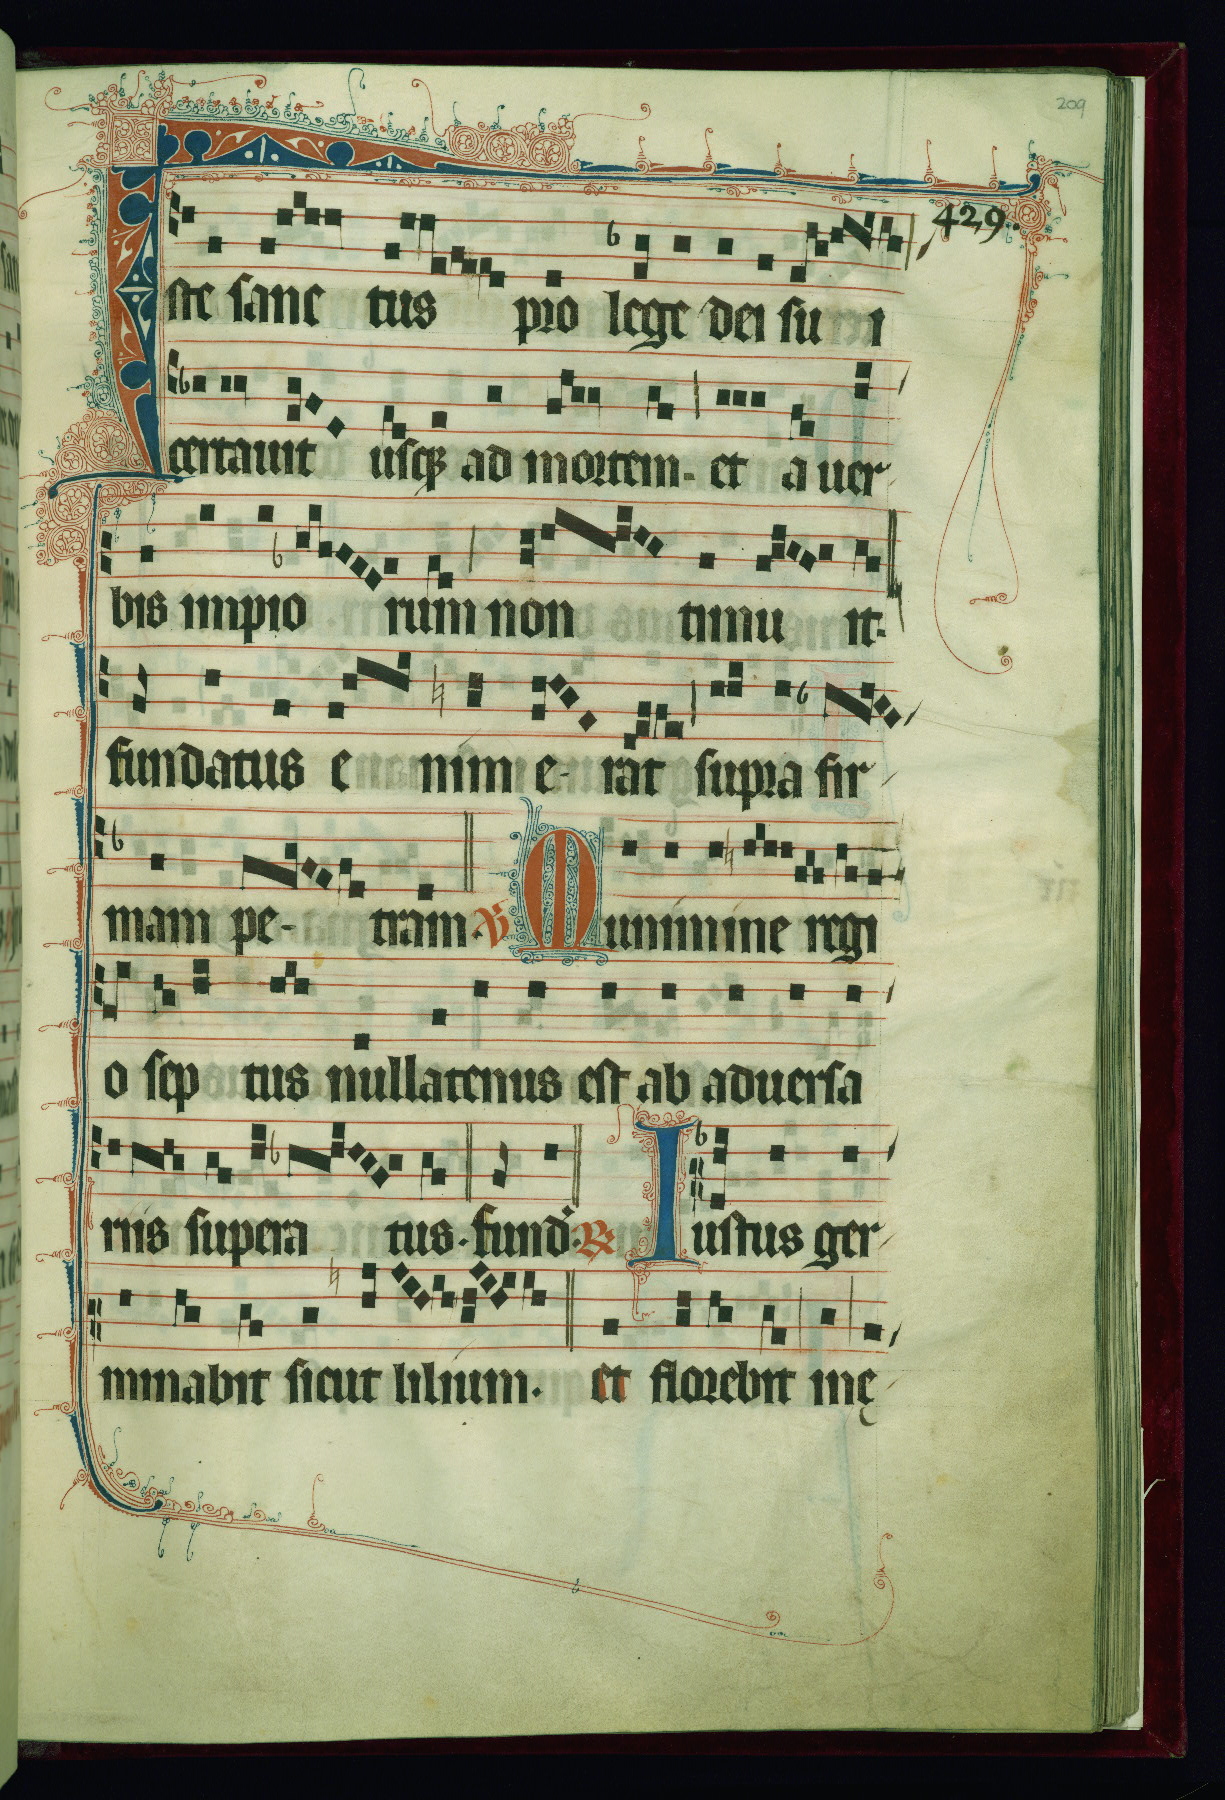 209
429.
Iste sanc tus pro lege dei su i
certauit usqꝫ ad mortem. et a uer
bis impio rum non timu it.
fundatus e nim e- rat supra fir
mam pe- tram. V Munimine regi
o sep tus nullatenus est ab aduersa
riis supera tus. fund. R Iustus ger
minabit sicut lilium. et florebit in ę